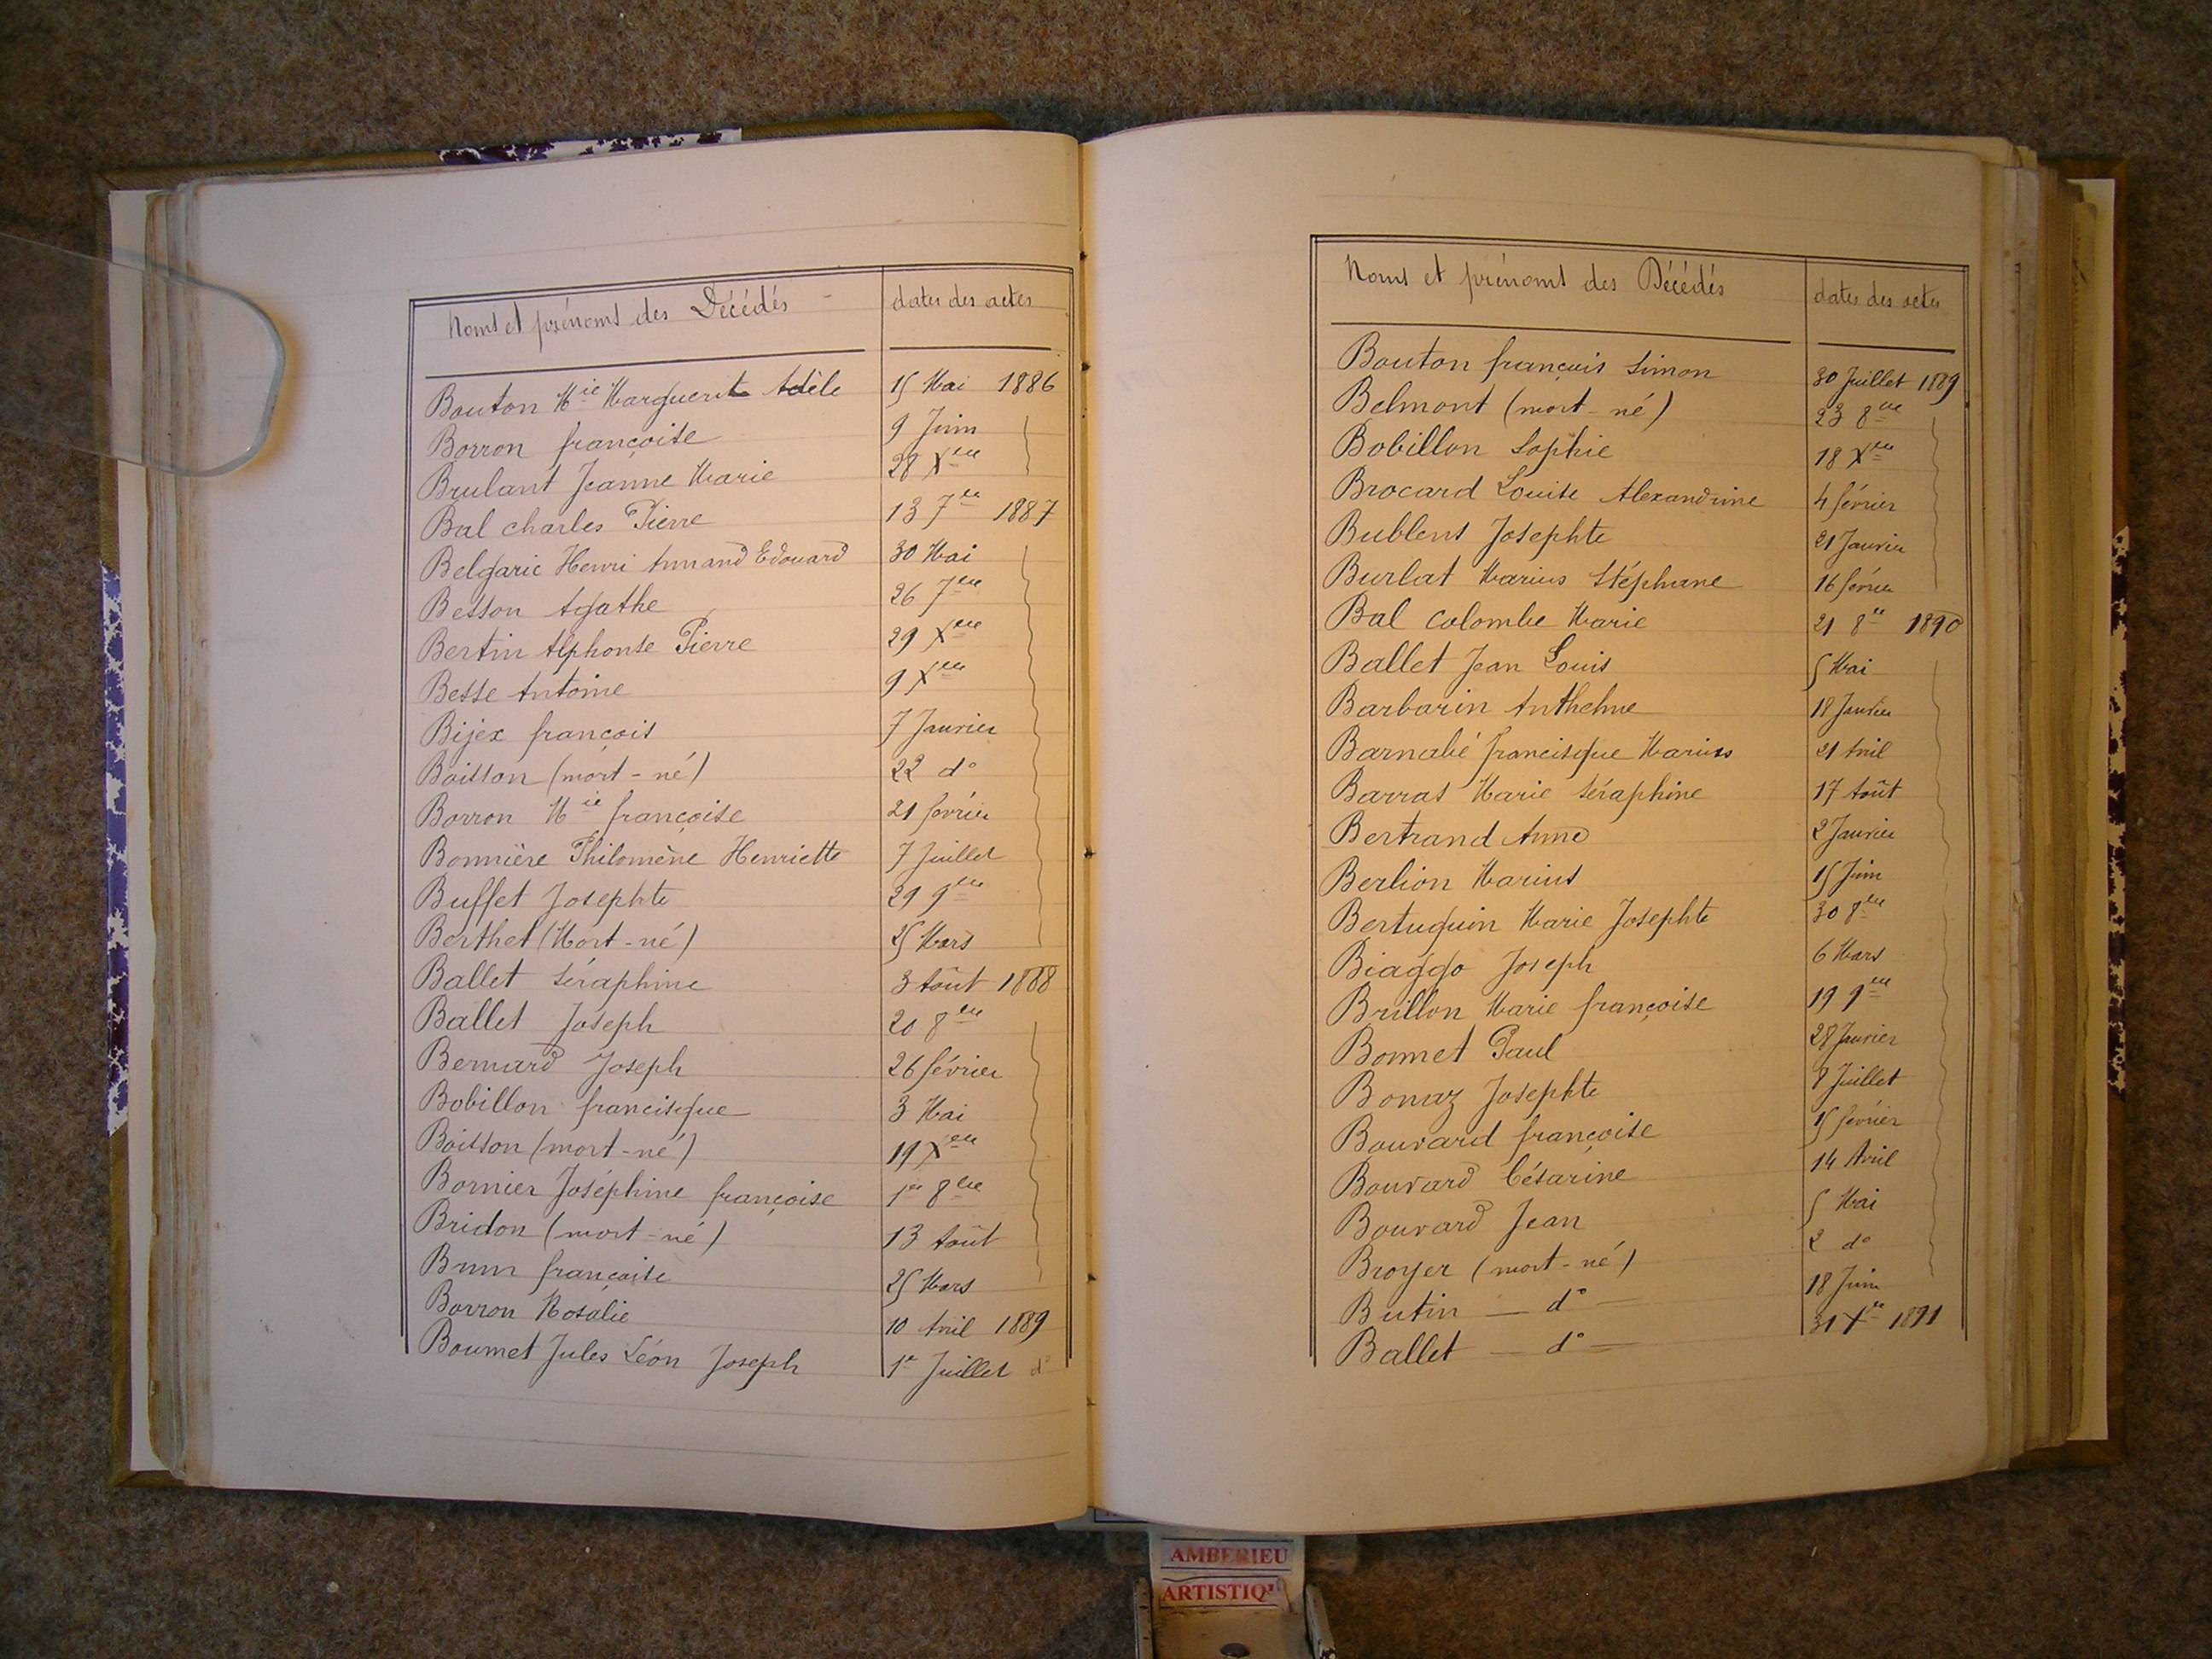 Noms et prénoms des Décédés dates des actes
Bouton Mie Marguerite Adèle 15 Mai 1886
Borron françoise 9 Juin
Brulant Jeanne Marie 28 Xbre
Bal charles Pierre 13 7bre 1887
Belgaric Henri Armand Edouard 30 Mai
Besson Agathe 26 7bre
Bertin Alphonse Pierre 29 Xbre
Besse Antoine 9 Xbre
Bijex françois 7 Janvier
Boisson (mort-né) 22 do
Borron Mie françoise 21 février
Bonnière Philomène Henriette 7 Juillet
Buffet Josephte 29 9bre
Berthet (Mort-né) 25 Mars
Ballet Séraphine 3 Août 1888
Ballet Joseph 20 8bre
Bernard Joseph 26 février
Bobillon francisque 3 Mai
Boisson (mort-né) 19 Xbre
Bornier Joséphine françoise 1er 8bre
Bridon (mort-né) 13 Août
Brun françoise 25 Mars
Borron Rosalie 10 Avril 1889
Boumet Jules Léon Joseph 1er Juillet do
Noms et prénoms des Décédés dates des actes
Bouton françois Simon 30 Juillet 1889
Belmont (mort-né) 23 8bre
Bobillon Sophie 18 Xbre
Brocard Louise Alexandrine 4 février
Bublens Josephte 21 Janvier
Burlat Marius Stéphane 16 février
Bal Colombe Marie 21 8bre 1890
Ballet Jean Louis 5 Mai
Barbarin Anthelme 18 Janvier
Barnabé francisque Marius 21 Avril
Barras Marie Séraphine 17 Août
Bertrand Anne 2 Janvier
Berlion Marius 15 Juin
Bertuguin Marie Josephte 30 8bre
Biaggo Joseph 6 Mars
Brillon Marie françoise 19 9bre
Bonnet Paul 28 Janvier
Bornaz Josephte 8 Juillet
Bouvard françoise 15 février
Bouvard Césarine 14 Avril
Bouvard Jean 5 Mai
Broyer (mort-né) 2 do
Butin — do — 18 Juin
Ballet — do — 31 Xbre 1891
AMBERIEU
ARTISTIQ